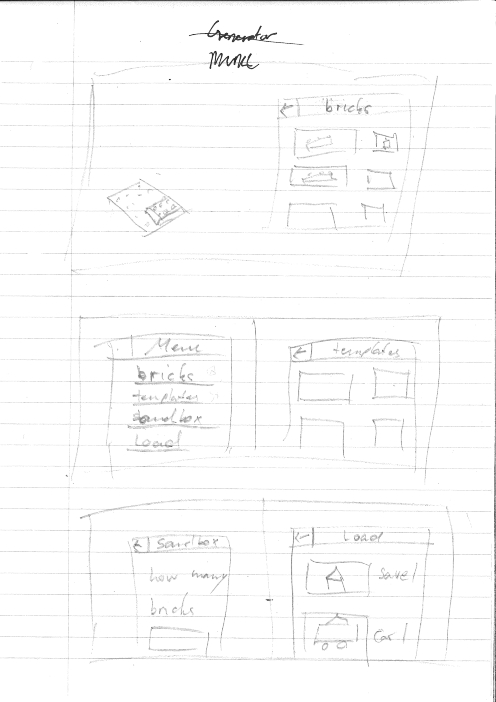 Generator
bricks
Menu
bricks
templates
sandbox
Load
templates
Sandbox
how many
bricks
Load
Save 1
Car 1